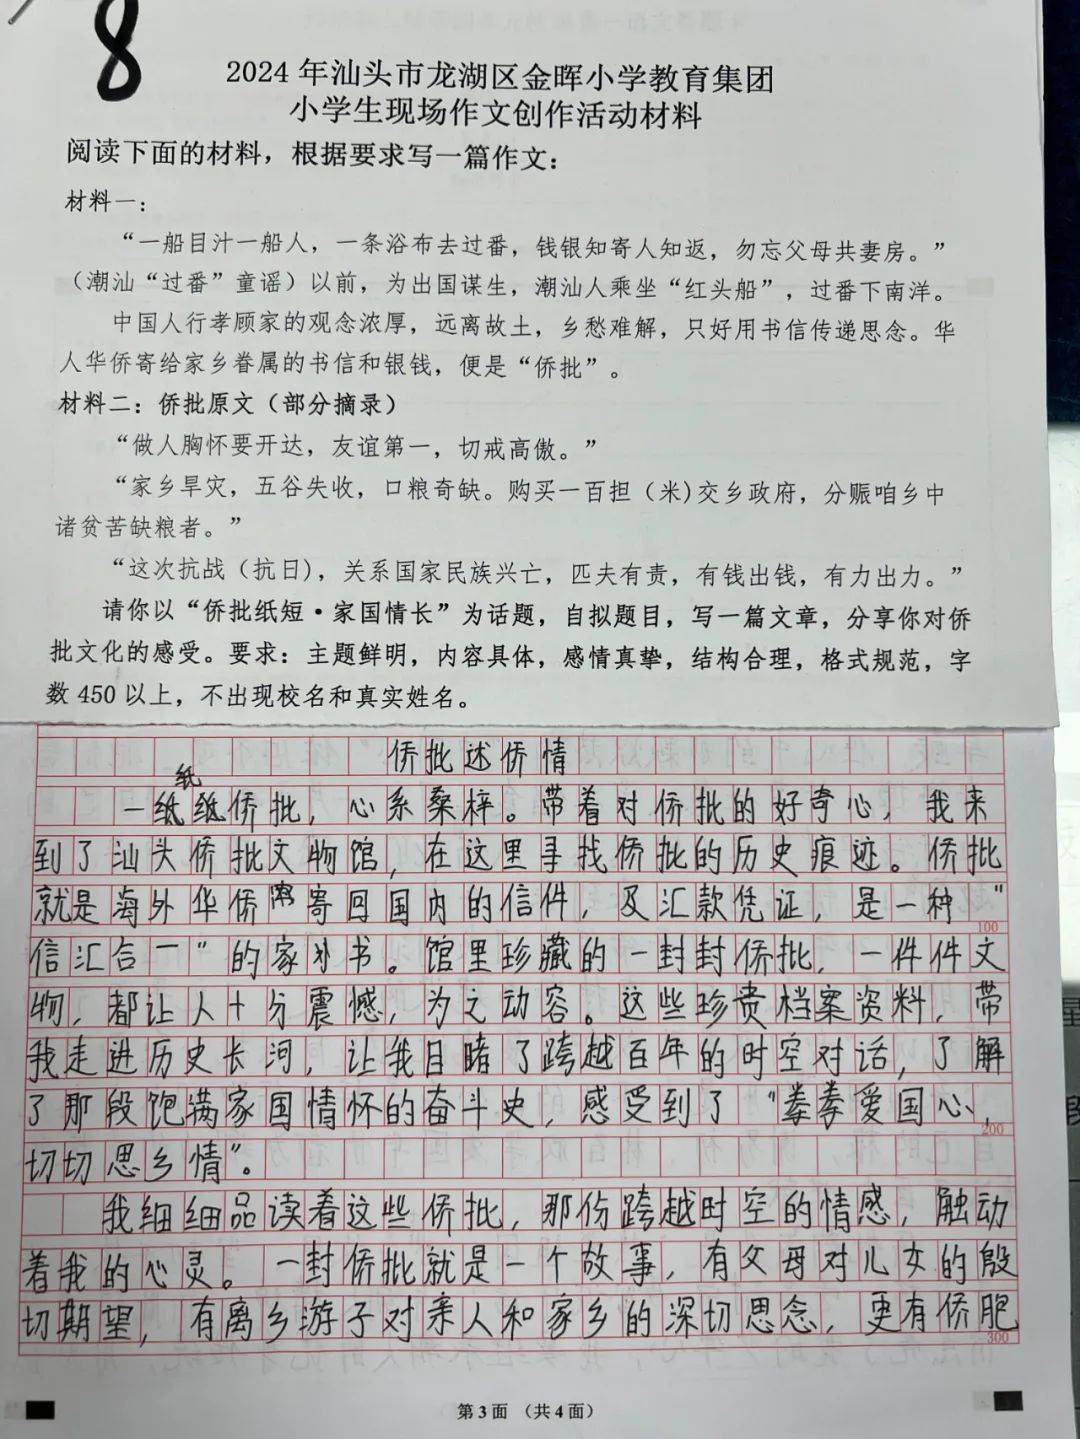 8
2024年汕头市龙湖区金晖小学教育集团
小学生现场作文创作活动材料
阅读下面的材料，根据要求写一篇作文：
材料一：
“一船目汁一船人，一条浴布去过番，钱银知寄人知返，勿忘父母共妻房。”
（潮汕“过番”童谣）以前，为出国谋生，潮汕人乘坐“红头船”，过番下南洋。
中国人行孝顾家的观念浓厚，远离故土，乡愁难解，只好用书信传递思念。华
人华侨寄给家乡眷属的书信和银钱，便是“侨批”。
材料二：侨批原文（部分摘录）
“做人胸怀要开达，友谊第一，切戒高傲。”
“家乡旱灾，五谷失收，口粮奇缺。购买一百担（米)交乡政府，分赈咱乡中
诸贫苦缺粮者。”
“这次抗战（抗日)，关系国家民族兴亡，匹夫有责，有钱出钱，有力出力。”
请你以“侨批纸短·家国情长”为话题，自拟题目，写一篇文章，分享你对侨
批文化的感受。要求：主题鲜明，内容具体，感情真挚，结构合理，格式规范，字
数450以上，不出现校名和真实姓名。
侨批述侨情
纸
一纸侨批，心系桑梓。带着对侨批的好奇心，我来
到了汕头侨批文物馆，在这里寻找侨批的历史痕迹。侨批
就是海外华侨寄回国内的信件，及汇款凭证，是一种“
100
信汇合一”的家书。馆里珍藏的一封封侨批，一件件文
物，都让人十分震憾，为之动容。这些珍贵档案资料，带
我走进历史长河，让我目睹了跨越百年的时空对话，了解
了那段饱满家国情怀的奋斗史，感受到了“拳拳爱国心，
200
切切思乡情”。
我细细品读着这些侨批，那份跨越时空的情感，触动
着我的心灵。一封侨批就是一个故事，有父母对儿女的殷
切期望，有离乡游子对亲人和家乡的深切思念，更有侨胞
300
第3面 （共4面）